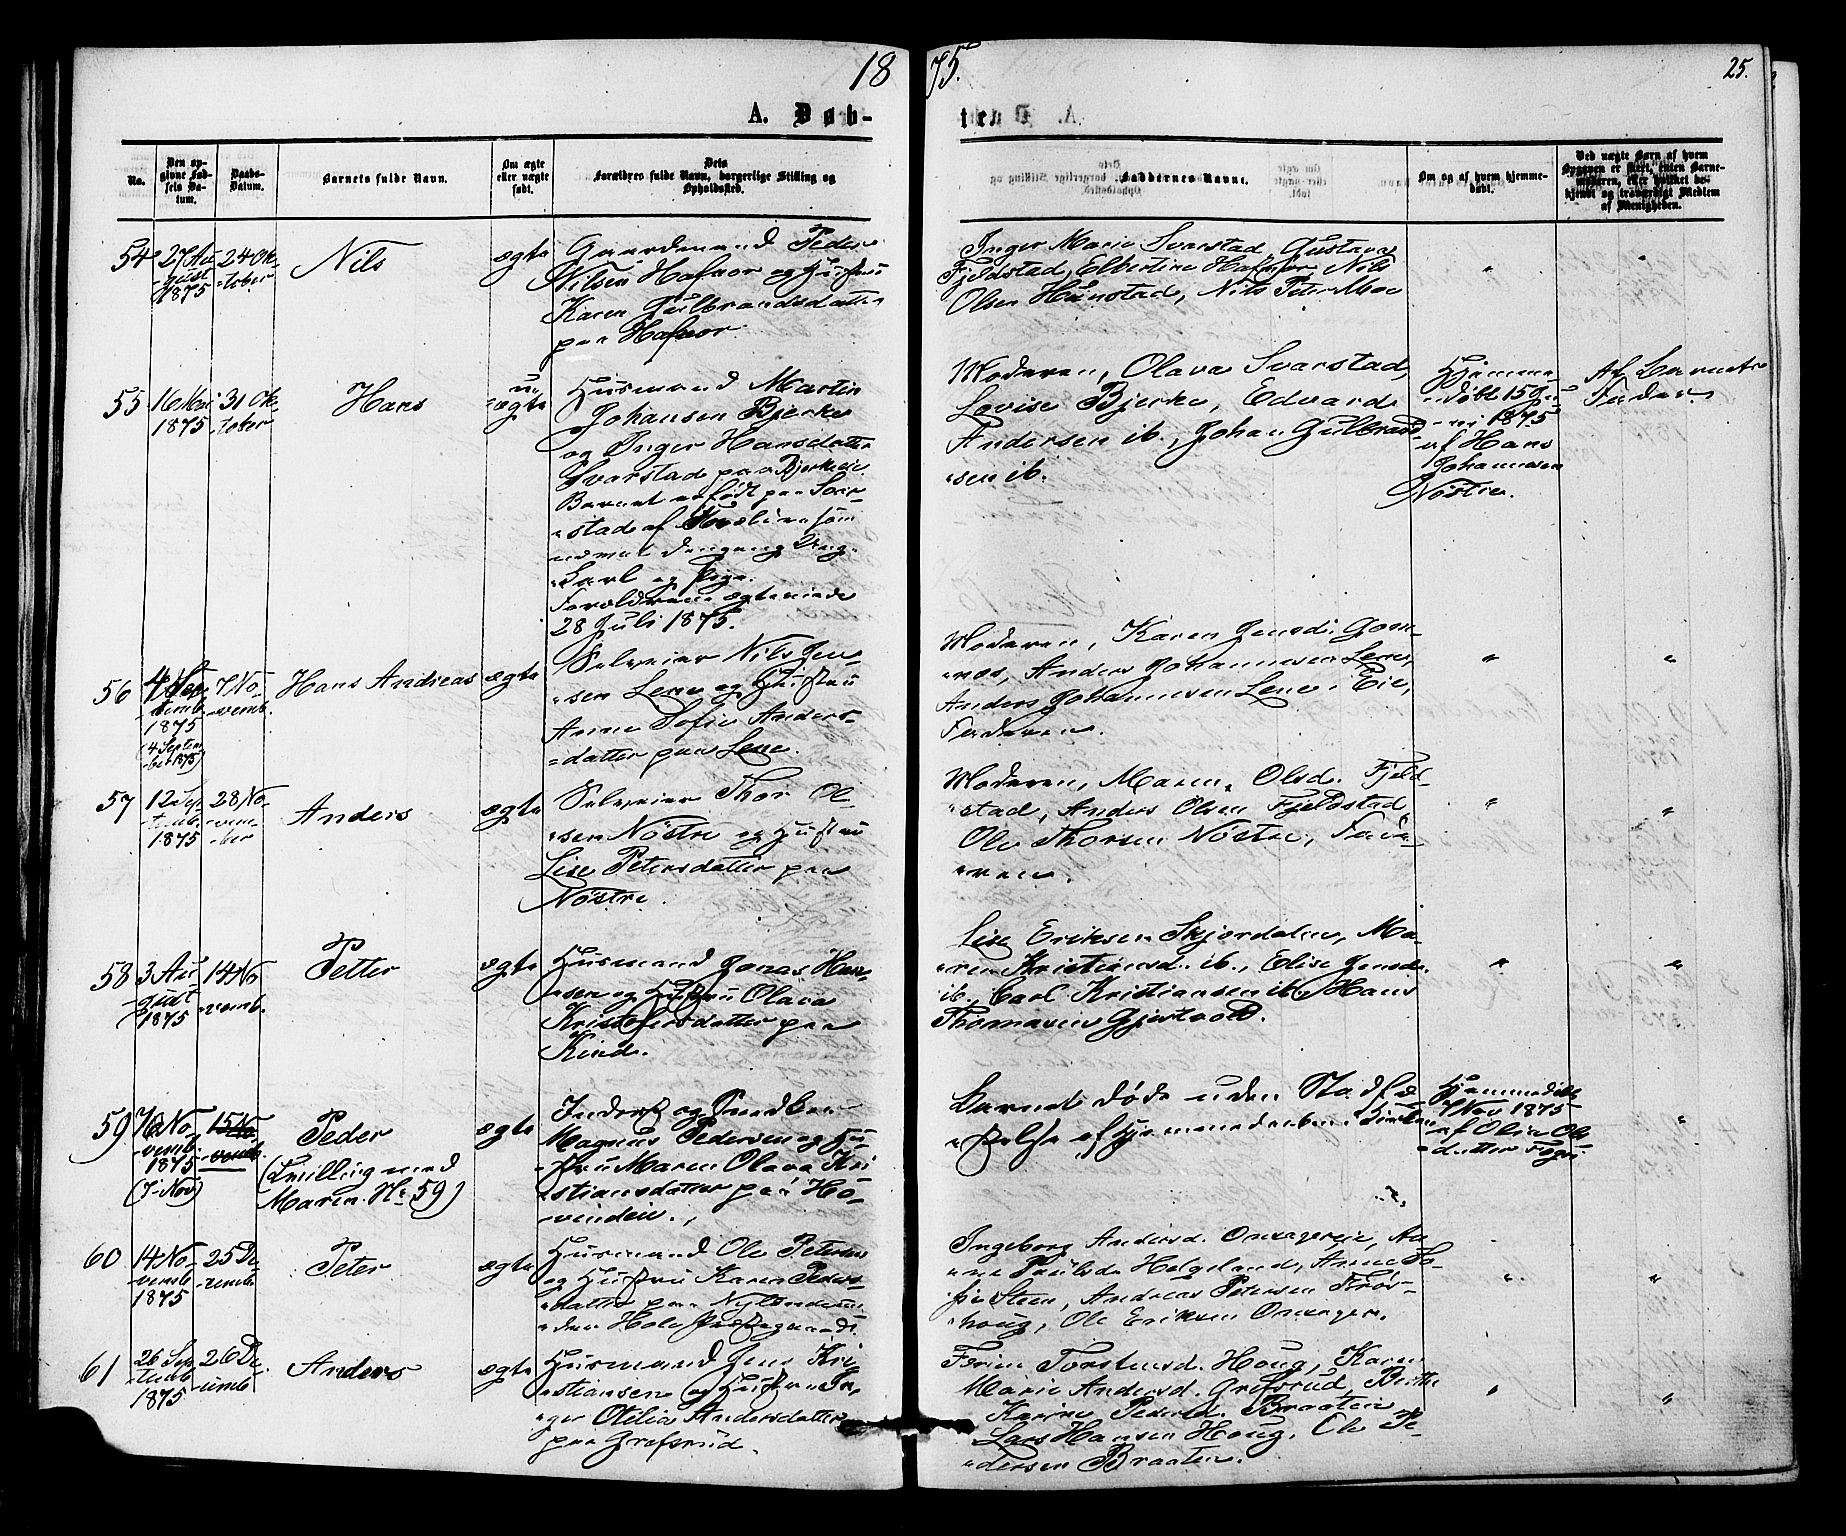 1875.
25.
A. Døb-
te.
No.
Den op-
givne Fød-
sels Da-
tum.
Daabs-
Datum.
Barnets fulde Navn.
Om ægte
eller uægte
født.
Dets
Forældres fulde Navn, borgerlige Stilling og
Opholdssted.
Faddernes Navne.
Om og af hvem hjemme-
døbt.
Ved uægte Børn af hvem
Opgaven er skeet, enten Barne-
moderen, eller hvilket be-
kjendt og troværdigt Medlem
af Menigheden.
54
27 Au-
gust
1875
24 Ok-
tober
Nils
ægte
Gaardmand Peder
Nilsen Hafnor og Hustru
Karen Gulbrandsdatter
paa Hafnor.
Inger Marie Svarstad, Gustava
Fjeldstad, Elbertine Hafnor, Nils
Olsen Hunstad, Nils Peter Moe
"
"
55
16 Mai
1875
31 Ok-
tober
Hans
u-
ægte
Husmand Martin
Johansen Bjerke
og Inger Hansdatter
Svarstad paa Bjerkeeie.
Barnet er født paa Svar-
stad af Forældrene som
var dengang Ung-
karl og Pige.
Forældrene ægteviede
28 Juli 1875.
Moderen, Olava Svarstad,
Lovise Bjerke, Edvard
Andersen ib., Johan Gulbrand-
sen ib.
Hjemme-
døbt 15 Ju-
ni 1875
af Hans
Johannesen
Nøstre.
Af Barnets
Fader.
56
4 Sep-
temb.
1875
(4 Septem-
ber 1875)
7 No-
vemb.
Hans Andreas
ægte
Selveier Nils Jen-
sen Lene og Hustru
Anne Sofie Anders-
datter paa Lene.
Moderen, Karen Jensd.
Anders Johannesen Lene,
Anders Johannesen Lene Eie,
Faderen.
"
"
57
12 Sep-
temb.
1875
28 No-
vem-
ber
Anders
ægte
Selveier Thor Ol-
sen Nøstre og Hustru
Lise Petersdatter paa
Nøstre.
Moderen, Maren Olsd. Fjeld-
stad, Anders Olsen Fjeldstad
Ole Thorsen Nøstre, Fade-
ren.
"
"
58
3 Au-
gust
1875
14 No-
vemb.
Petter
ægte
Husmand Jonas Han-
sen og Hustru Olava
Kristofersdatter paa
Kind.
Lise Eriksen Skjordalen, Ma-
ren Kristiansd. ib., Elise Jensd.
ib., Carl Kristiansen ib., Hans
Thomasen Gjestvold.
"
"
59
No-
vemb.
1875
(7 Nov)
15 No-
vemb.
Peder
(Tvilling med
Maren No. 59)
ægte
Inderst og Snedker
Magnus Pedersen og Hu-
stru Maren Olava Kri-
stiansdatter paa Ho-
vinden.
Barnet døde uden Stadfæ-
stelse af Hjemmedaaben i Kirken
Hjemmedøbt
7 Nov 1875
af Olia Ols-
datter
"
60
14 No-
vemb.
1875
25 De-
cemb.
Peter
ægte
Husmand Ole Petersen
og Hustru Karen Peders-
datter paa Nylænde un-
der Hole Præstegaard.
Ingeborg Andersd. Onsagereie, An-
ne Paulsd. Helgeland, Anne So-
fie Steen, Andreas Petersen Frøs-
houg, Ole Eriksen Onsager.
"
"
61
26 Sep-
temb.
1875
26 De-
cemb.
Anders
ægte
Husmand Jens Kri-
stiansen og Hustru In-
ger Otilia Andersdatter
paa Grefsrud.
Torstensd. Houg, Karen
Marie Andersd. Grefsrud, Berthe
Karine Pedersd. Braaten
Lars Hansen Houg, Ole Pe-
dersen Braaten.
"
"